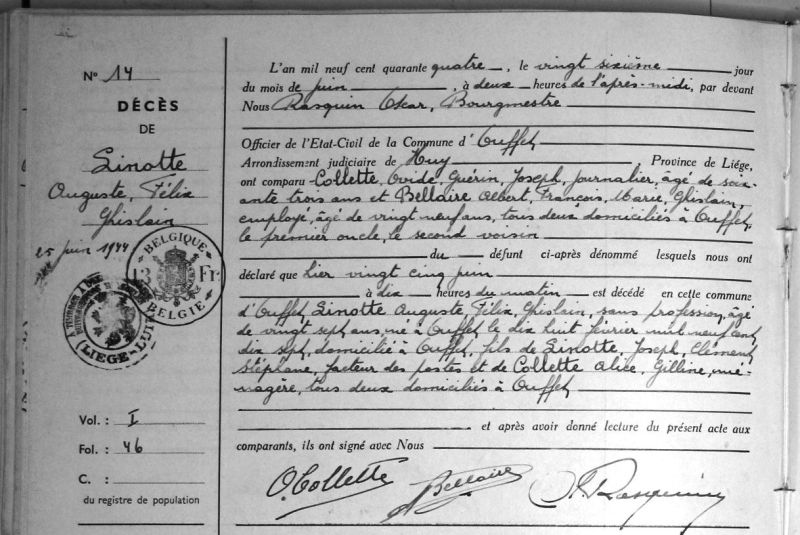 N° 14
DÉCÈS
DE
Linotte
Auguste, Félix
Ghislain
25 juin 1944
BELGIQUE
13 Fr
BELGIE
LIEGE-LUIK
Vol. : I
Fol. : 46
C. :
du registre de population
L'an mil neuf cent quarante quatre, le vingt sixième jour
du mois de juin, à deux heures de l'après-midi, par devant
Nous Rasquin Oscar, Bourgmestre
Officier de l'Etat-Civil de la Commune d'Ouffet
Arrondissement judiciaire de Huy, Province de Liége,
ont comparu Collette, Ovide, Guérin, Joseph, journalier, âgé de soix-
ante trois ans et Bellaire Albert, François, Marie, Ghislain,
employé, âgé de vingt neuf ans, tous deux domiciliés à Ouffet,
le premier oncle, le second voisin
du défunt ci-après dénommé lesquels nous ont
déclaré que hier vingt cinq juin
à dix heures du matin est décédé en cette commune
d'Ouffet, Linotte Auguste, Félix, Ghislain, sans profession, âgé
de vingt sept ans, né à Ouffet le dix huit février mil neuf cent
dix sept, domicilié à Ouffet, fils de Linotte, Joseph, Clément,
Stéphane, facteur des postes et de Collette Alice, Gilline, mé-
nagère, tous deux domiciliés à Ouffet
et après avoir donné lecture du présent acte aux
comparants, ils ont signé avec Nous
O. Collette
Bellaire
Rasquin